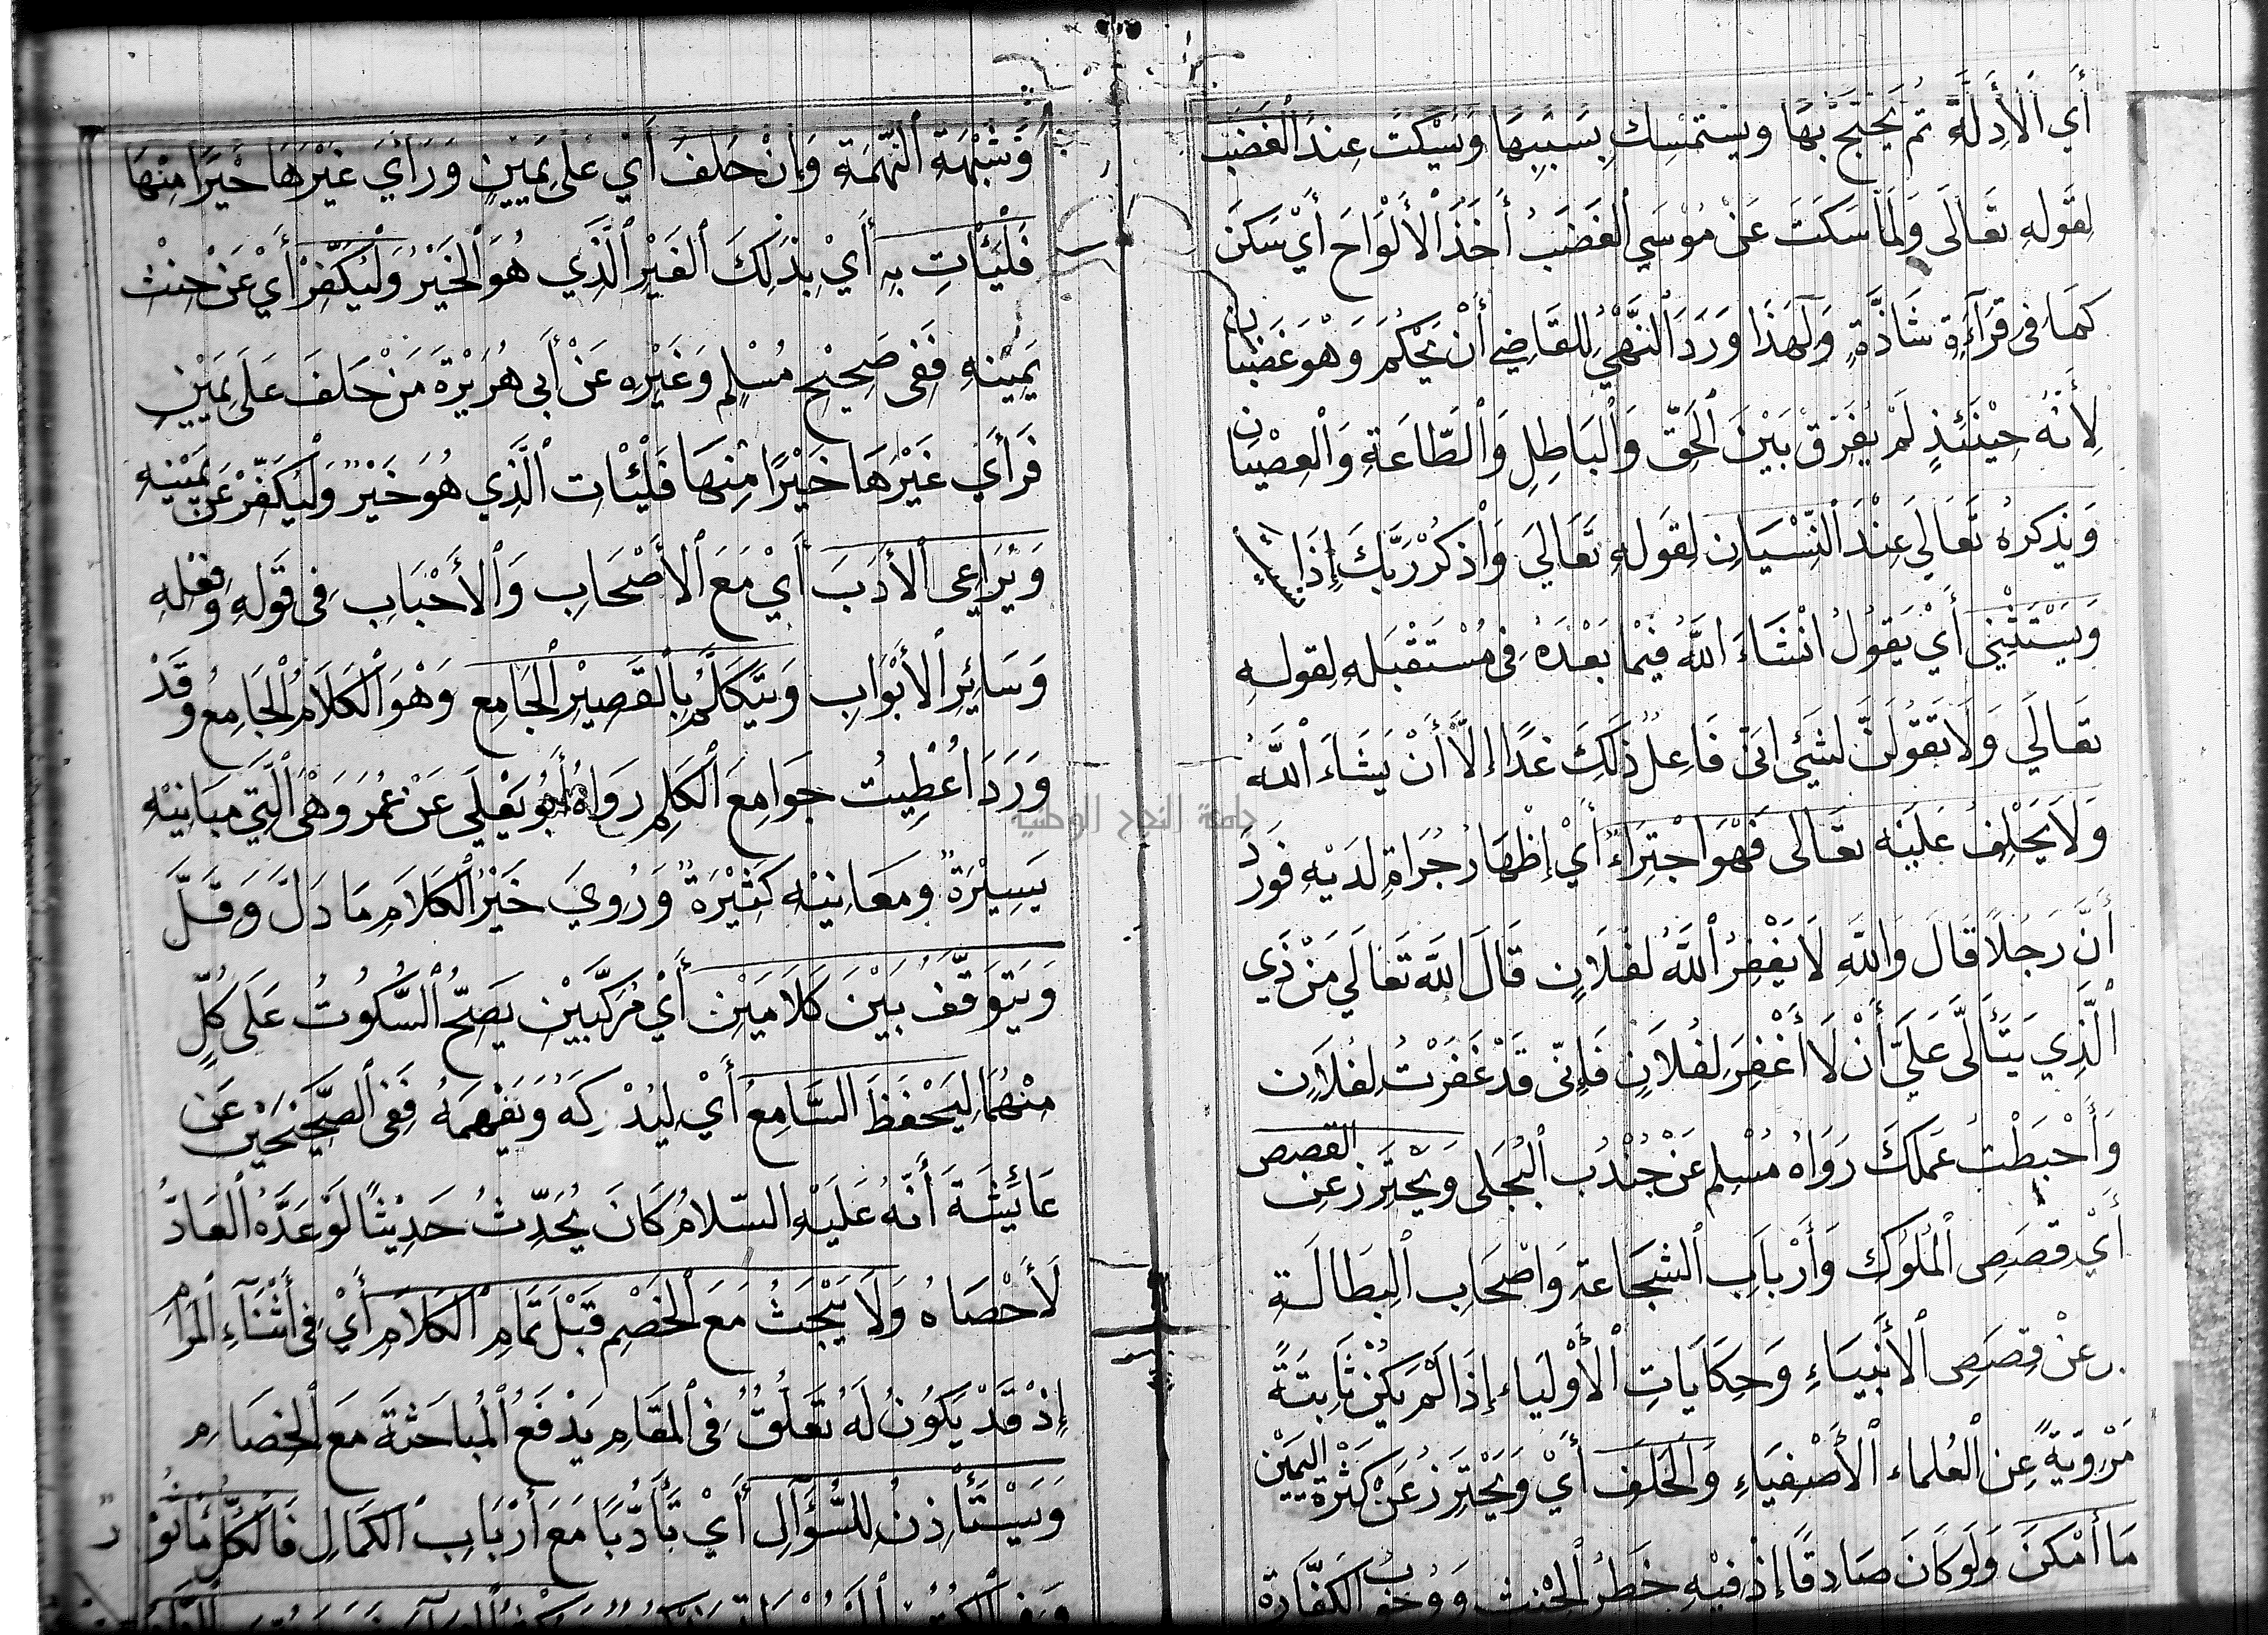 أَي الْأَدِلَّةَ ثُمَّ يَحْتَجّ بِهَا ويستمسك بِسَبَبِهَا وَيَسْكُتُ عِنْدَ الْغَضَبِ
لِقَوْلِهِ تعَالَى وَلَمَّا سَكَتَ عَنْ مُوْسَي الْغَضَبُ أَخَذَ الْأَلْوَاحَ أَيْ سَكَنَ
كمَا في قرَآءَةٍ شَاذَّةٍ وَلِهَذَا وَرَدَ النَّهْيُ لِلْقَاضِي أَنْ يَحْكُمَ وَهْوَ غَضْبَان
لِأَنَّهُ حِيْنَئِذٍ لَمْ يُفَرِّقْ بَيْنَ الْحَقِّ وَالْبَاطِلِ وَالطَّاعَةِ وَالْعِصْيَان
وَيَذكرُهُ تَعَالَي عِنْدَ النِّسْيَانِ لِقَوْلِهِ تَعَالَيَ وَاْذكُرْ رَبَّكَ إِذَا
وَيَسْتَثْنِي أَيْ يَقُوْلُ انْشَاءَ اللَّهُ فِيْمَا بَعْدَهُ فِي مُسْتَقْبَلِهِ لِقَولِهِ
تعَالَي وَلَا تَقُوْلَنَّ لشَيْئٍ اِنّي فَاعِلٌ ذَلِكَ غَدًا إِلَّا أَنْ يَشَاءَ اللَّهُ
وَلَا يَحْلِفُ عَلَيْهِ تعَالى فَهْوَ اجْتِرَاءٌ أَيْ إِظْهَارُ جُرَاةٍ لَدَيْهِ فَوَرَدَ
أَنَّ رَجُلًا قَالَ وَاللَّهِ لَا يَغْفِرُ اللَّهُ لفُلَانٍ قَالَ اللَّه تَعَالَي مَنْ ذَي
الَّذِي يَتَأَلَّى عَلَيَّ أَنْ لَا أَغْفِرَ لِفُلَانٍ فَإِنّي قَدْ غَفَرْتُ لِفُلَانٍ
وَأَحْبَطْتُ عَمَلَكَ رَوَاهُ مُسْلِم عَنْ جُنْدُب الْبُجَلِي وَيَحْتَرِز عَن القصص
أَيْ قِصَصِ الْمُلُوْكِ وَأَرْبَابِ الشَّجَاعَة وَاصْحَابِ الْبِطَالَـة
عَنْ قِصَصِ الْأَنْبِيَاءِ وَحِكَايَاتِ الْأَوْلِيَاءِ إِذَا لَمْ يَكُنْ ثَابِتَةً
مَرْوِيَّةً عِن الْعُلماء الْأَصْفِيَاءِ وَالْحَلِفَ أَيْ وَيَحْتَرِزُ عَنْ كَثْرَةِ الْيَمِيْنِ
مَا أَمْكَنَ وَلَو كَانَ صَادِقًا إِذْ فِيْهِ خَطَرُ الْحِنْثِ وَوُجُوْبُ الْكَفَّارَة
وَشُبْهَةِ التُّهْمَةِ وَإِنْ حَلَفَ أَيْ عَلَى يَمِيْنٍ وَرَأَيَ غَيْرَهَا خَيْرًا مِنْهَا
فَلْيَأْتِ بِهِ أَيْ بِذَلِكَ الْغَيْرِ الَّذِي هُوَ الْخَيْرُ وَلْيُكَفِّرْ أَيْ عَنْ حِنْث
يَمِيْنِهِ فَفي صَحِيْحِ مُسْلِمٍ وَغَيْرِهِ عَنْ أَبي هُرَيْرَةَ مَنْ حَلَفَ عَلَى يَمِيْنٍ
فَرَأَيَ غَيْرَهَا خَيْرًا مِنْهَا فَلْيَأْتِ الَّذِي هُوَ خَيْرٌ وَلْيُكَفِّرْ عَن يَمِيْنِهِ
وَيُرَاعِي الْأَدَبَ أَيْ مَعَ الْأَصْحَابِ وَالْأَحْبَابِ فِي قَوْلِهِ وَفِعْلِهِ
وَسَائِرِ الْأَبْوَابِ وَيَتَكَلَّمُ بِالْقَصِيْرِ الْجَامِعِ وَهْوَ الْكَلَامُ الْجَامِعُ وَقَدْ
وَرَدَ أُعْطِيتُ جَوَامِعَ الْكَلِمِ رَوَاهُ أَبُو يَعْلَي عَنْ عُمَرَ وَهْيَ الَّتِي مَبَانِيْهِ
يَسِيْرَةٌ ومعَانِيْهِ كَثِيْرَةٌ وَرُوِيَ خَيْرُ الْكَلَامِ مَا دَلَّ وَقَلَّ
وَيَتَوَقَّفُ بَيْنَ كَلَامَيْنِ أَيْ مُرَكَّبَيْنِ يَصِحُّ السُّكُوتُ عَلَى كُلٍّ
مِنْهُمَا لِيَحْفَظَ السَّامِعُ أَيْ لِيُدْرِكَهُ وَيَفْهَمَهُ فَفِي الصَّحِيْحَيْنِ عَن
عَائِشَةَ أَنَّهُ عَلَيْهِ السّلَامُ كَانَ يُحَدِّثُ حَدِيْثًا لَوْ عَدَّهُ الْعَادُّ
لَأَحْصَاهُ وَلَا يَبْحَثُ مَعَ الْخَصْمِ قَبْلَ تَمَامِ الْكَلَامِ أَيْ فِي أَثْنَآءِ الْمَرَامِ
إِذْ قَدْ يَكُوْنُ لَهُ تَعَلُّقٌ فِي الْمَقَامِ يَدْفَعُ الْمُبَاحَثَةَ مَعَ الْخِصَامِ
وَيَسْتَأْذِنُ لِلسُّؤَالِ أَيْ تَأَدُّبًا مَعَ أَرْبَابِ الْكَمَالِ فَالْكُلُّ
جامعة النجاح الوطنية